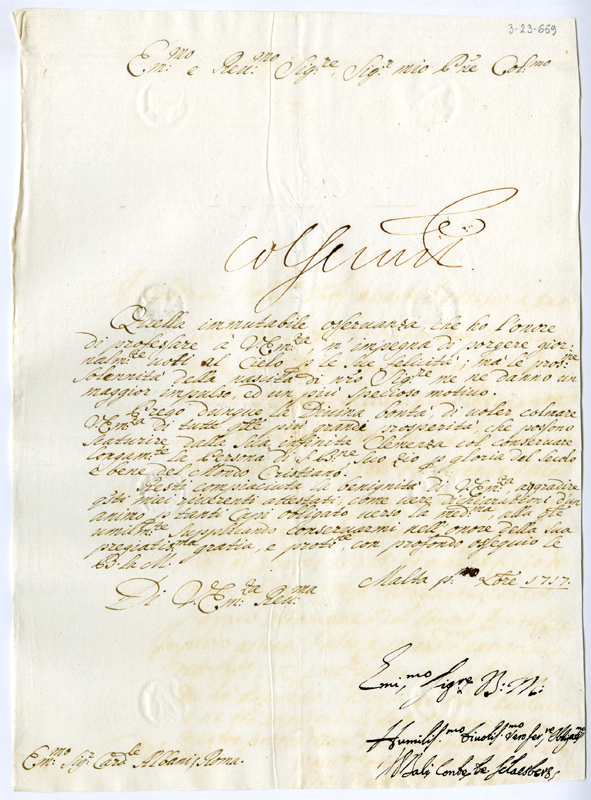 3-23-659
Em.mo e Reu.mo Sig.re, Sig.r mio P.rne Col.mo
Quella immutabile osseruanza, che ho l'onore
di professare à V.Em.za m'impegna di porgere gior:
nalm.te uoti al Cielo p le sue felicità; mà le pros.me
solennità della nascita di nro Sig.re me ne danno un
maggior impulso, ed un più specioso motiuo.
Prego dunque la Diuina bontà, di uoler colmare
V.Em.za di tutte q.lle più grandi prosperità, che possono
scaturire dalla sua infinita Clemenza col conseruare
longam.te la Persona di S. B.ne suo Zio p gloria del secolo
e bene del Mondo Cristiano.
Resti compiaciuta la benignità di V.Em.za aggradire
q.ti miei riuerenti attestati, come uere d'un
animo p tanti Capi obligato uerso la med.ma alla q.le
umilm.te supplicando conseruarmi nell'onore della sua
pregiatis.ma gratia, e prot.ne, con profondo ossequio le
B. la M.
Di V. Em.za Reu.ma Malta p.mo Xbre 1717.
Emi.mo Sig.re P: N:
Humilis.mo Diuotis.mo
Bali Conte de Schaesberg
Em.mo Sig.r Card.le Albani, Roma.